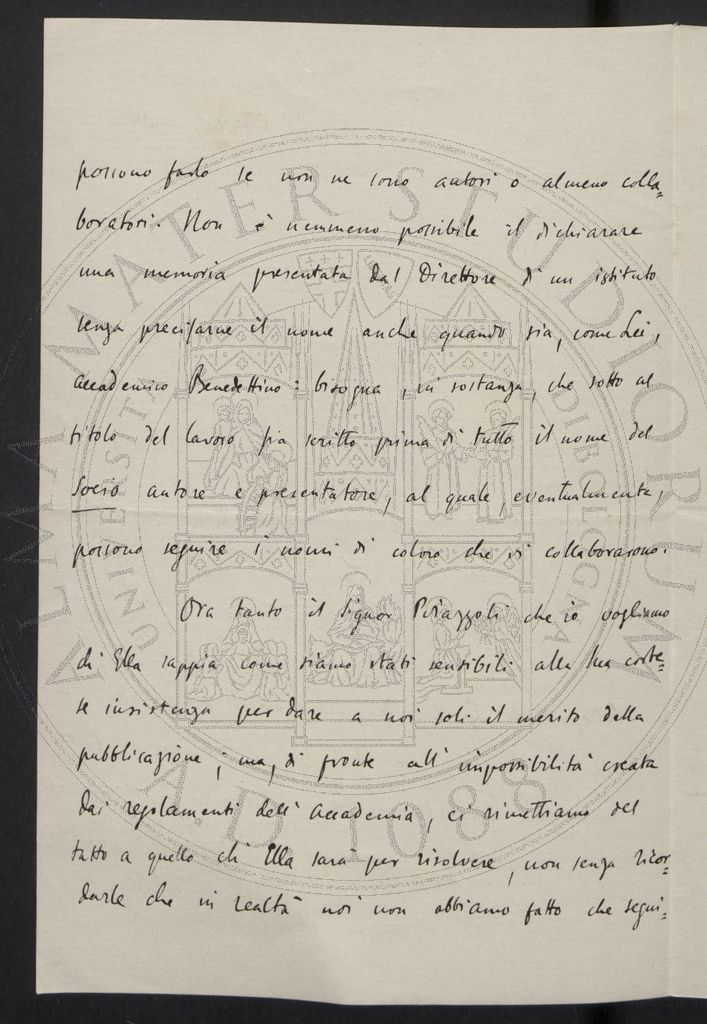 possono farlo se non ne sono autori o almeno colla=
boratori. Non è nemmeno possibile il dichiarare
una memoria presentata dal Direttore di un istituto
senza precisarne il nome anche quando sia, come Lei,
accademico Benedettino: bisogna, in sostanza, che sotto al
titolo del lavoro sia scritto prima di tutto il nome del
Socio autore e presentatore, al quale, eventualmente,
possono seguire i nomi di coloro che vi collaborarono.
Ora tanto il Signor Pirazzoli che io vogliamo
ch' Ella sappia come siamo stati sensibili alla Sua corte=
se insistenza per dare a noi soli il merito della
pubblicazione; ma, di fronte all' impossibilità creata
dai regolamenti dell' Accademia, ci rimettiamo del
tutto a quello ch' Ella sarà per risolvere, non senza ricor=
darle che in realtà noi non abbiamo fatto che segui=
ALMA MATER STUDIORUM
UNIVERSITÀ DI BOLOGNA
A.D. 1088